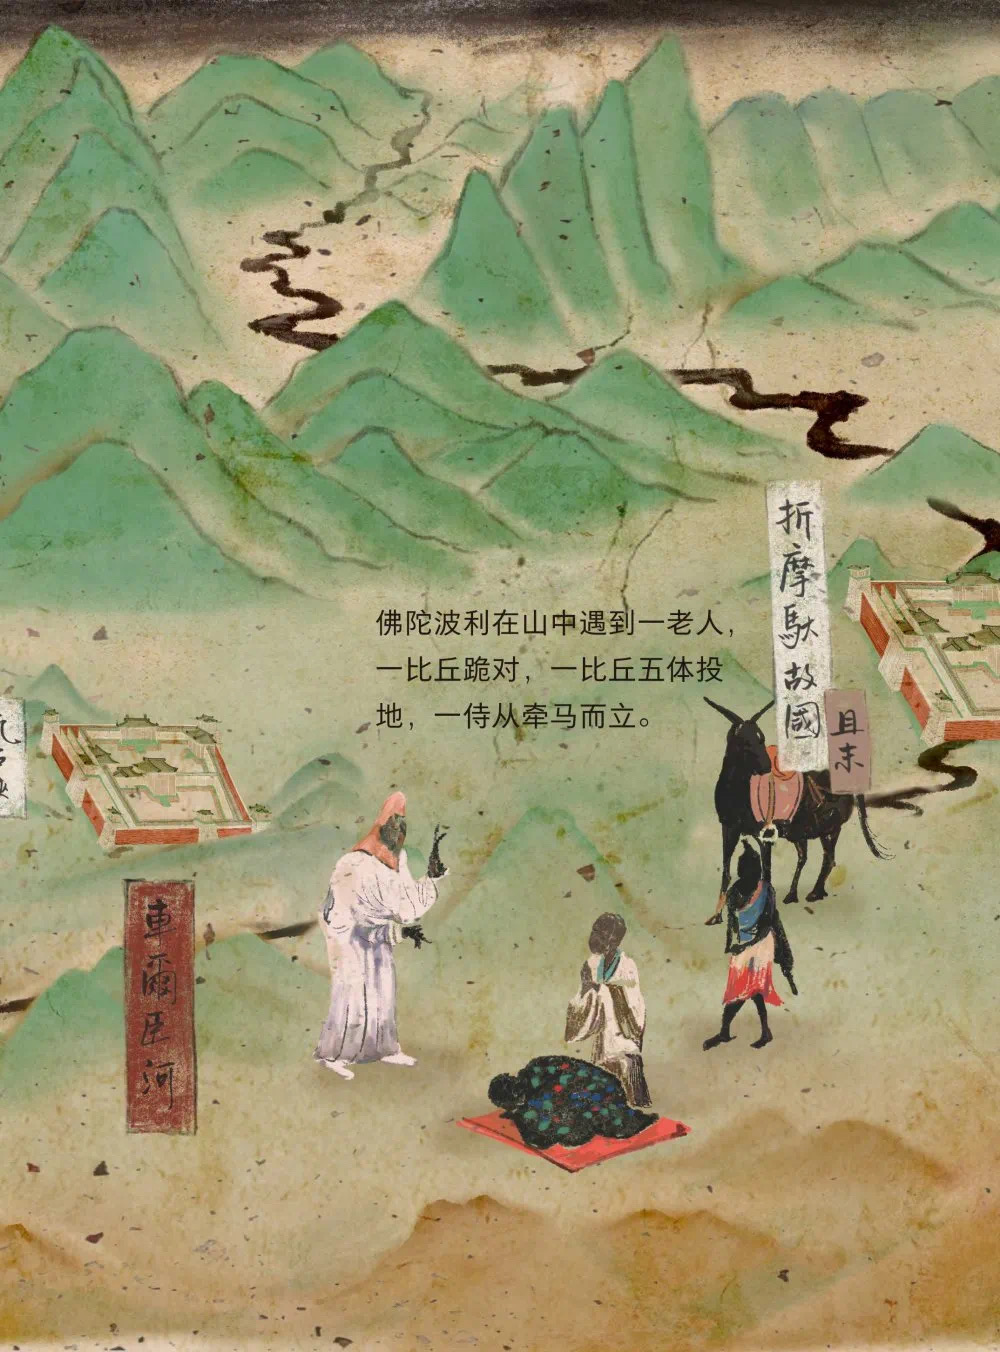 折摩馱故國
且末
佛陀波利在山中遇到一老人，
一比丘跪对，一比丘五体投
地，一侍从牵马而立。
車爾臣河